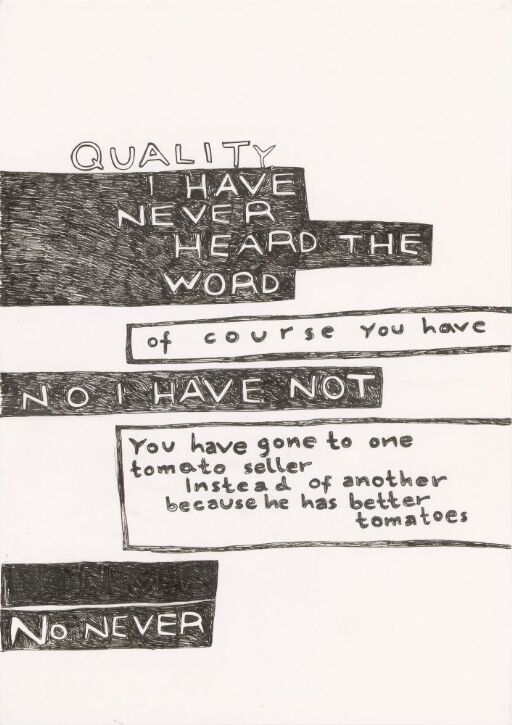 QUALITY
I HAVE
NEVER
HEARD THE
WORD
of course you have
NO I HAVE NOT
You have gone to one
tomato seller
Instead of another
because he has better
tomatoes
No NEVER